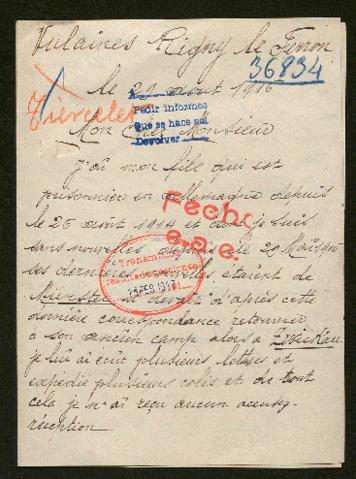 Vulaines Rigny le Ferron
36834
le 29 aout 1916
Tiercelet
Pedir informes
Que se hace asi
Devolver
Mon Cher Monsieur
J'ai mon fils qui est
prisonnier en Allemagne depuis
Fecho
le 25 aout 1914 et dont je suis
sans nouvelles depuis le 29
ses dernières nouvelles étaient de
Munster et devait d'après cette
dernière correspondance retourner
à son ancien camp alors à Zwickau
je lui ai écrit plusieurs lettres et
expédié plusieurs colis et de tout
cela je n'ai reçu aucun accusez-
réception